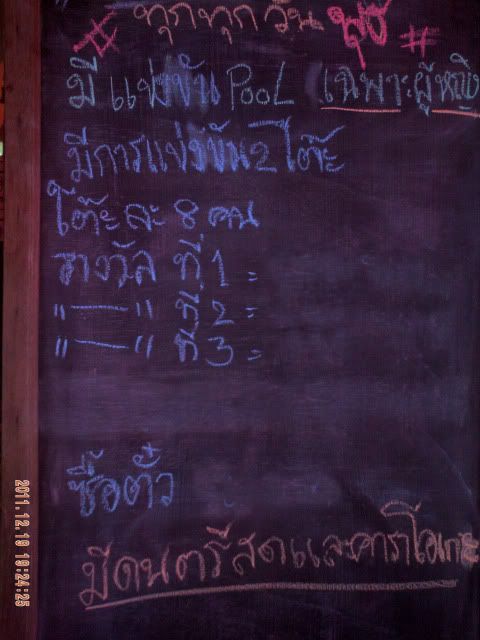 # ทุกทุก วัน พุธ #
มี แข่งขัน POOL เฉพาะผู้หญิง
มีการแข่งขัน 2 โต๊ะ
โต๊ะ ละ 8 คน
รางวัล ที่ 1 =
" — " ที่ 2 =
" — " ที่ 3 =
ซื้อตั๋ว
มีดนตรีสดและคาราโอเกะ
2011.12.19 19:24:25